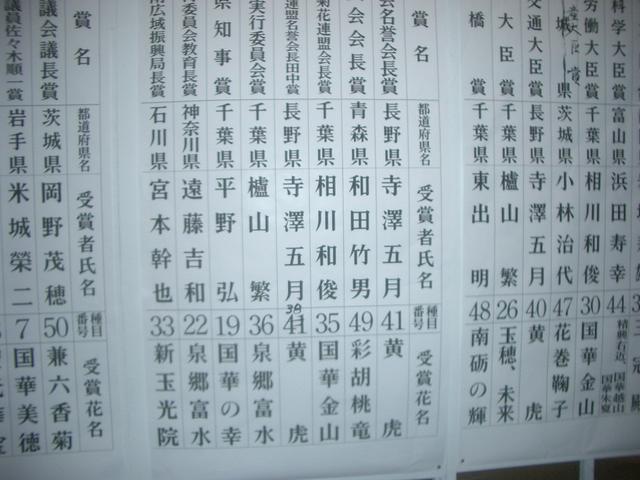 科学大臣賞 富山県 浜田寿幸 44 精興右近、国華越山 国華朱夏
労働大臣賞 千葉県 相川和俊 30 国華金山
茨城県 小林治代 47 花巻鞠子
交通大臣賞 長野県 寺澤五月 40 黄虎
大臣賞 千葉県 櫨山繁 26 玉穂、未来
橋賞 千葉県 東出明 48 南砺の輝
賞名 都道府県名 受賞者氏名 種目番号 受賞花名
会名誉会長賞 長野県 寺澤五月 41 黄虎
会会長賞 青森県 和田竹男 49 彩胡桃竜
菊花連盟会長賞 千葉県 相川和俊 35 国華金山
連盟名誉会長田中賞 長野県 寺澤五月 38 41 黄虎
実行委員会賞 千葉県 櫨山繁 36 泉郷富水
県知事賞 千葉県 平野弘 19 国華の幸
委員会教育長賞 神奈川県 遠藤吉和 22 泉郷富水
南広域振興局長賞 石川県 宮本幹也 33 新玉光院
賞名 都道府県名 受賞者氏名 種目番号 受賞花名
議会議長賞 茨城県 岡野茂穂 50 兼六香菊
議員佐々木順一賞 岩手県 米城榮二 7 国華美徳